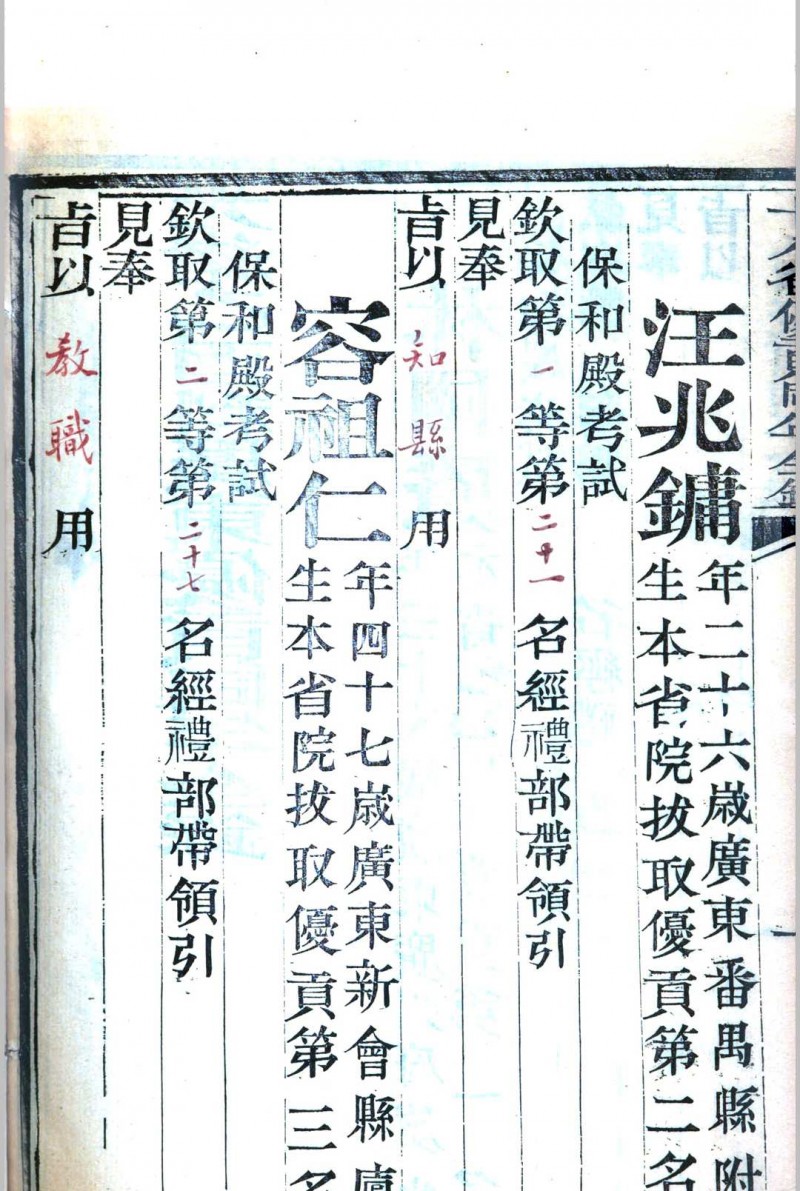 汪兆鏞
年二十六歲廣東番禺縣附
生本省院拔取優貢第二名
保和殿考試
欽取第一等第二十一名經禮部帶領引
見奉
旨以知縣用
容祖仁
年四十七歲廣東新會縣廩
生本省院拔取優貢第三名
保和殿考試
欽取第二等第二十七名經禮部帶領引
見奉
旨以教職用